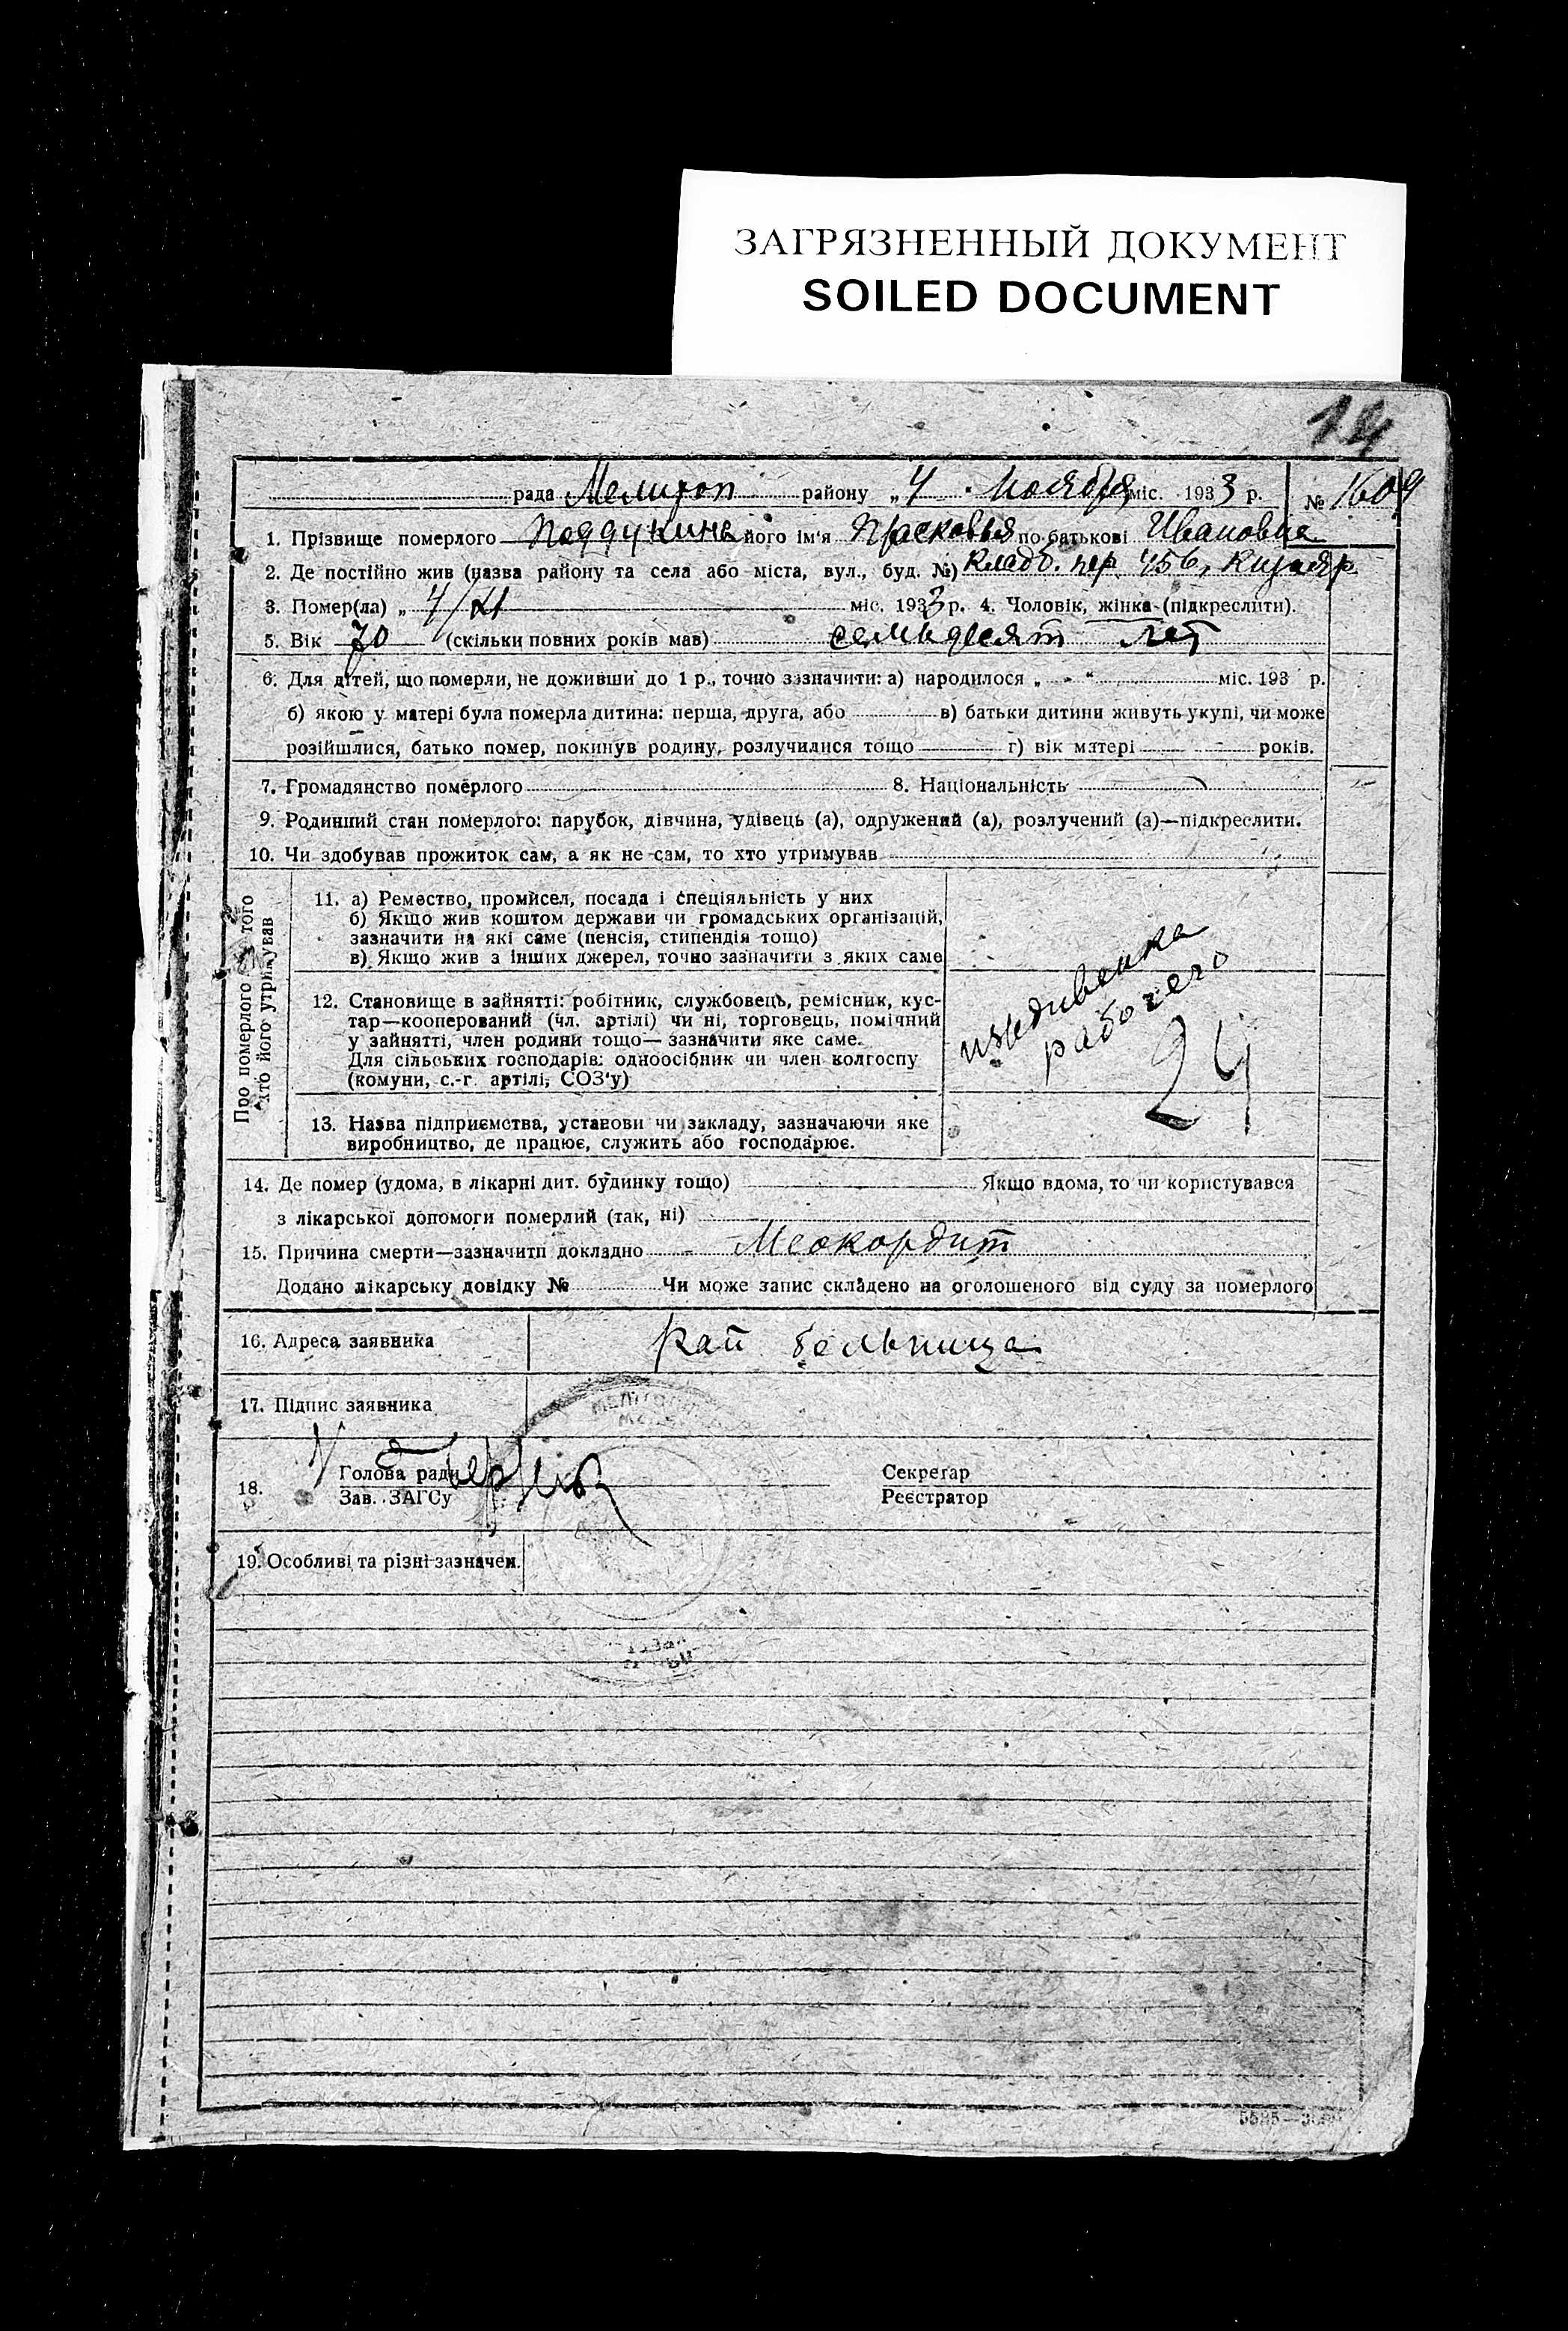 ЗАГРЯЗНЕННЫЙ ДОКУМЕНТ
SOILED DOCUMENT
14
рада Мелитоп району „4 " Ноября міс. 1933 р. № 1609
1. Прізвище померлого Поддукина його ім'я Прасковья по батькові Ивановна
2. Де постійно жив (назва району та села або міста, вул., буд. №) Кладб. пер. 456, Кизияр
3. Помер(ла) „ 4/XI міс. 1933 р. 4. Чоловік, жінка (підкреслити).
5. Вік 70 (скільки повних років мав) семьдесят лет
6. Для дітей, що померли, не доживши до 1 р., точно зазначити: а) народилося „ " міс. 193 р.
б) якою у матері була померла дитина: перша, друга, або в) батьки дитини живуть укупі, чи може
розійшлися, батько помер, покинув родину, розлучилися тощо г) вік матері років.
7. Громадянство померлого 8. Національність
9. Родинний стан померлого: парубок, дівчина, удівець (а), одружений (а), розлучений (а)—підкреслити.
10. Чи здобував прожиток сам, а як не сам, то хто утримував
Про померлого того
хто його утримував
11. а) Ремество, промисел, посада і спеціяльність у них
б) Якщо жив коштом держави чи громадських організацій,
зазначити на які саме (пенсія, стипендія тощо)
в) Якщо жив з інших джерел, точно зазначити з яких саме
12. Становище в зайнятті: робітник, службовець, ремісник, кус-
тар—кооперований (чл. артілі) чи ні, торговець, помічний
у зайнятті, член родини тощо— зазначити яке саме.
Для сільських господарів: одноосібник чи член колгоспу
(комуни, с.-г. артілі, СОЗ'у)
иждивенка
рабочего
24
13. Назва підприємства, установи чи закладу, зазначаючи яке
виробництво, де працює, служить або господарює.
14. Де помер (удома, в лікарні дит. будинку тощо) Якщо вдома, то чи користувався
з лікарської допомоги померлий (так, ні)
15. Причина смерти—зазначити докладно Меокордит
Додано лікарську довідку № Чи може запис складено на оголошеного від суду за померлого
16. Адреса заявника Рай больница
17. Підпис заявника
18. Голова ради Секретар
Зав. ЗАГСу Реєстратор
19. Особливі та різні зазначен.